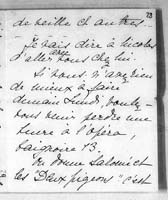 23
de veiller et autres...
Je vais dire à Nicolas
d'aller chez lui.
Si vous n'avez rien
de mieux à faire
demain Lundi, voulez-
vous venir perdre une
heure à l'Opéra,
baignoire 13.
On donne Salomé et
les Deux pigeons" c'est